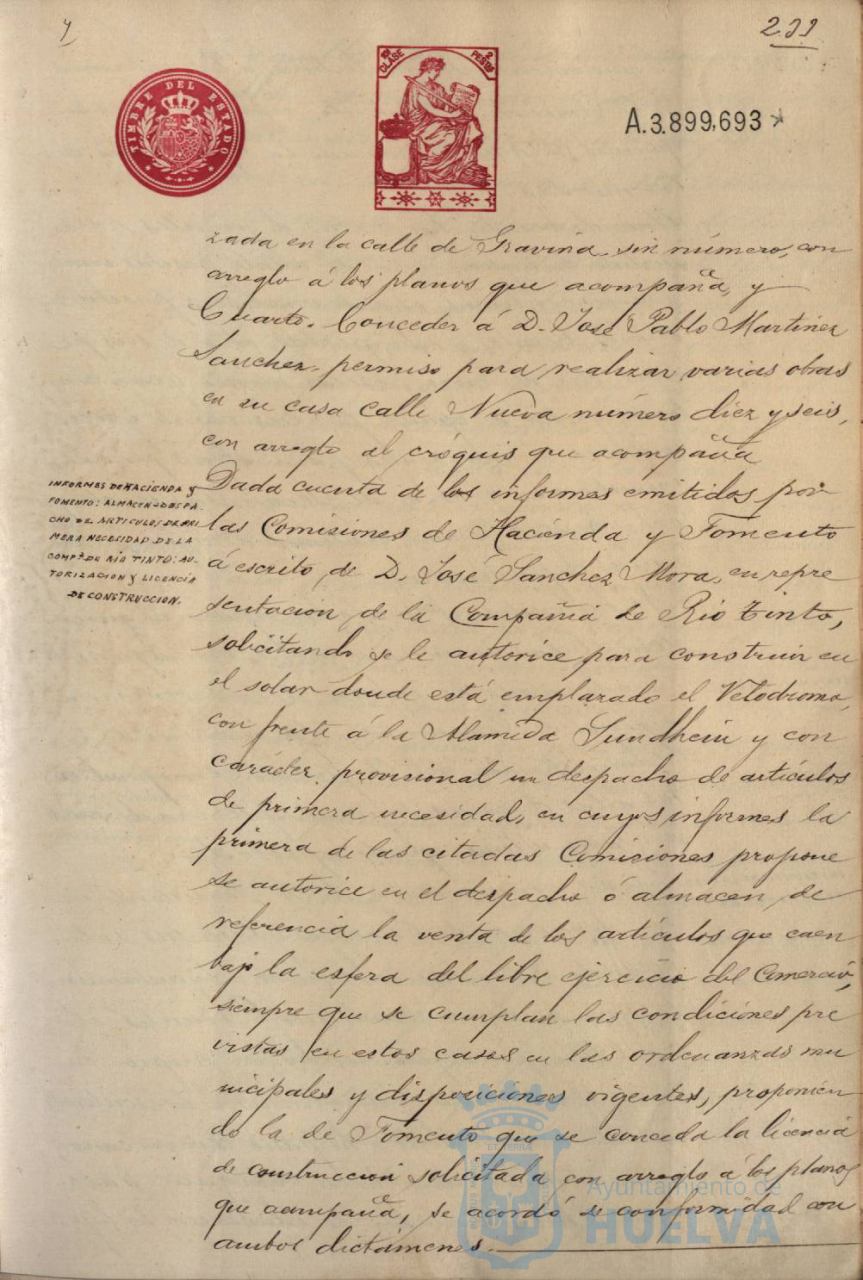 4
233
TIMBRE DEL ESTADO
10ª CLASE
2 PESETAS
A.3.899,693
zada en la calle de Gravina, sin número, con
arreglo á los planos que acompaña, y
Cuarto. Conceder á D. José Pablo Martinez
Sanchez, permiso para realizar varias obras
en su casa calle Nueva número diez y seis,
con arreglo al cróquis que acompaña
INFORMES DE HACIENDA Y
FOMENTO: ALMACEN-DESPA-
CHO DE ARTICULOS DE PRI-
MERA NECESIDAD DE LA
COMPª DE RÍO TINTO: AU-
TORIZACION Y LICENCIA
DE CONSTRUCCION.
Dada cuenta de los informes emitidos por
las Comisiones de Hacienda y Fomento
á escrito de D. José Sanchez Mora, en repre
sentación de la Compañia de Rio Tinto,
solicitando se le autorice para construir en
el solar donde está emplazado el Velodromo,
con frente á la Alameda Sundhein y con
carácter provisional un despacho de artículos
de primera necesidad, en cuyos informes la
primera de las citadas Comisiones propone
se autorice en el despacho ó almacen, de
referencia la venta de los artículos que caen
bajo la esfera del libre ejercicio del Comercio,
siempre que se cumplan las condiciones pre
vistas en estos casos en las ordenanzas mu
nicipales y disposiciones vigentes, proponien
do la de Fomento que se conceda la licencia
de construccion solicitada con arreglo á los planos
que acompaña, se acordó de conformidad con
ambos dictámenes.
Ayuntamiento de
HUELVA